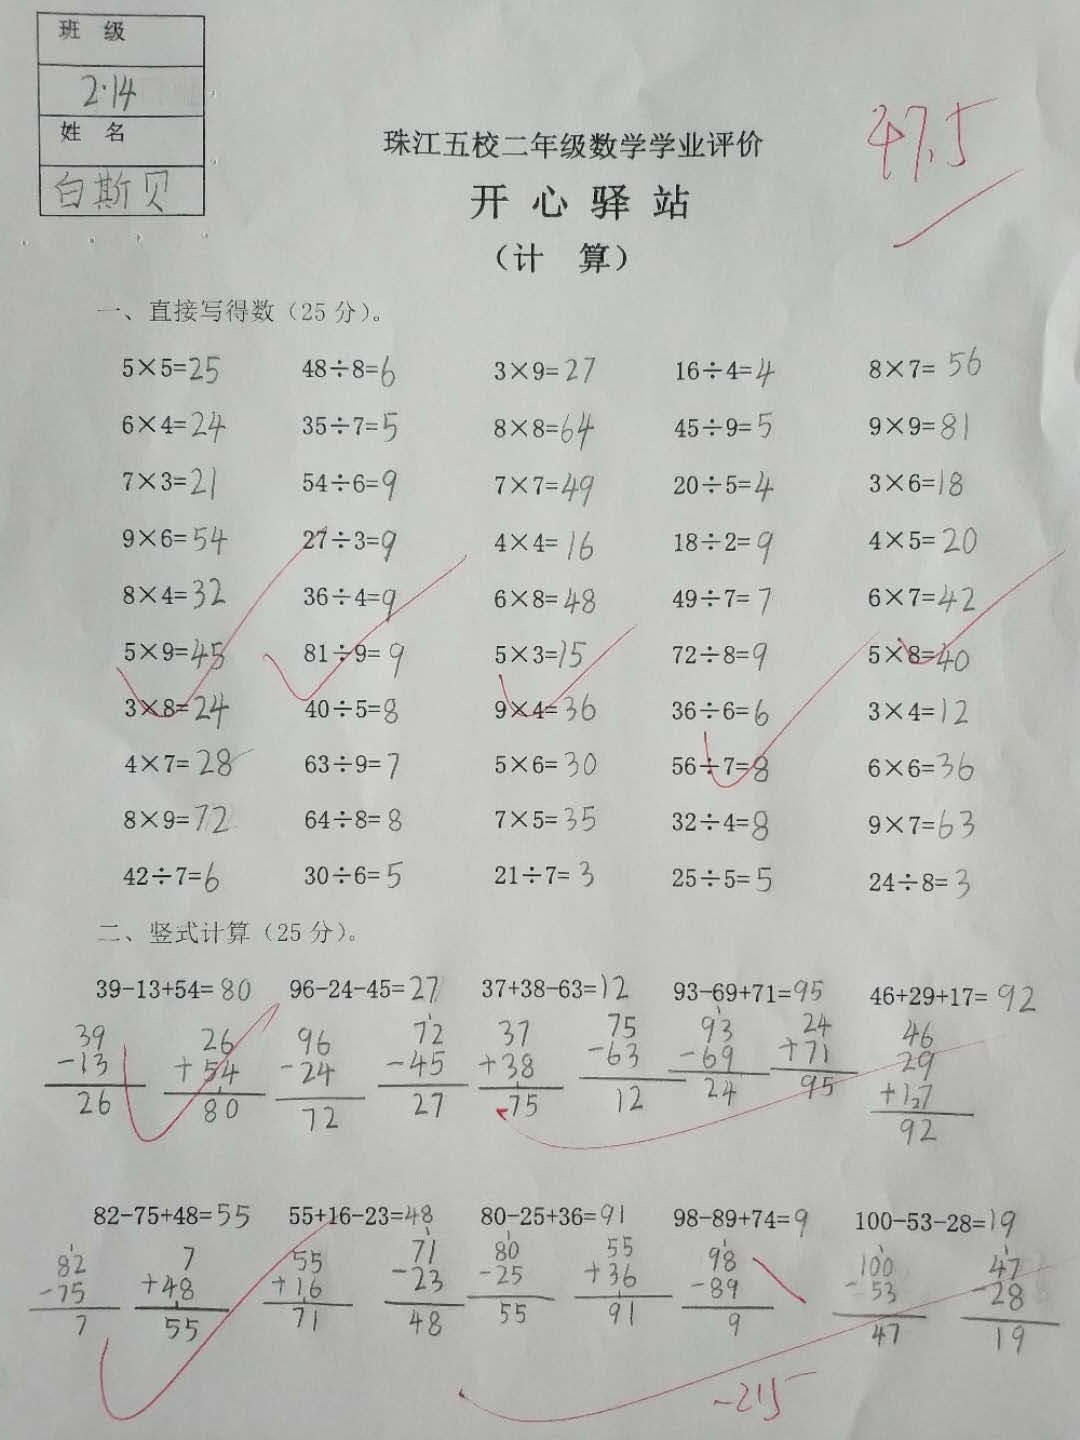 班 级
2·14
姓 名
白斯贝
47.5
珠江五校二年级数学学业评价
开 心 驿 站
（计 算）
一、直接写得数（25分）。
5×5=25 48÷8=6 3×9=27 16÷4=4 8×7=56
6×4=24 35÷7=5 8×8=64 45÷9=5 9×9=81
7×3=21 54÷6=9 7×7=49 20÷5=4 3×6=18
9×6=54 27÷3=9 4×4=16 18÷2=9 4×5=20
8×4=32 36÷4=9 6×8=48 49÷7=7 6×7=42
5×9=45 81÷9=9 5×3=15 72÷8=9 5×8=40
3×8=24 40÷5=8 9×4=36 36÷6=6 3×4=12
4×7=28 63÷9=7 5×6=30 56÷7=8 6×6=36
8×9=72 64÷8=8 7×5=35 32÷4=8 9×7=63
42÷7=6 30÷6=5 21÷7=3 25÷5=5 24÷8=3
二、竖式计算（25分）。
39-13+54=80 96-24-45=27 37+38-63=12 93-69+71=95 46+29+17=92
39 26 96 72 37 75 93 24 46
-13 +54 -24 -45 +38 -63 -69 +71 29
26 80 72 27 75 12 24 95 +17
92
82-75+48=55 55+16-23=48 80-25+36=91 98-89+74=9 100-53-28=19
82 7 55 71 80 55 98 100 47
-75 +48 +16 -23 -25 +36 -89 -53 -28
7 55 71 48 55 91 9 47 19
-2.5